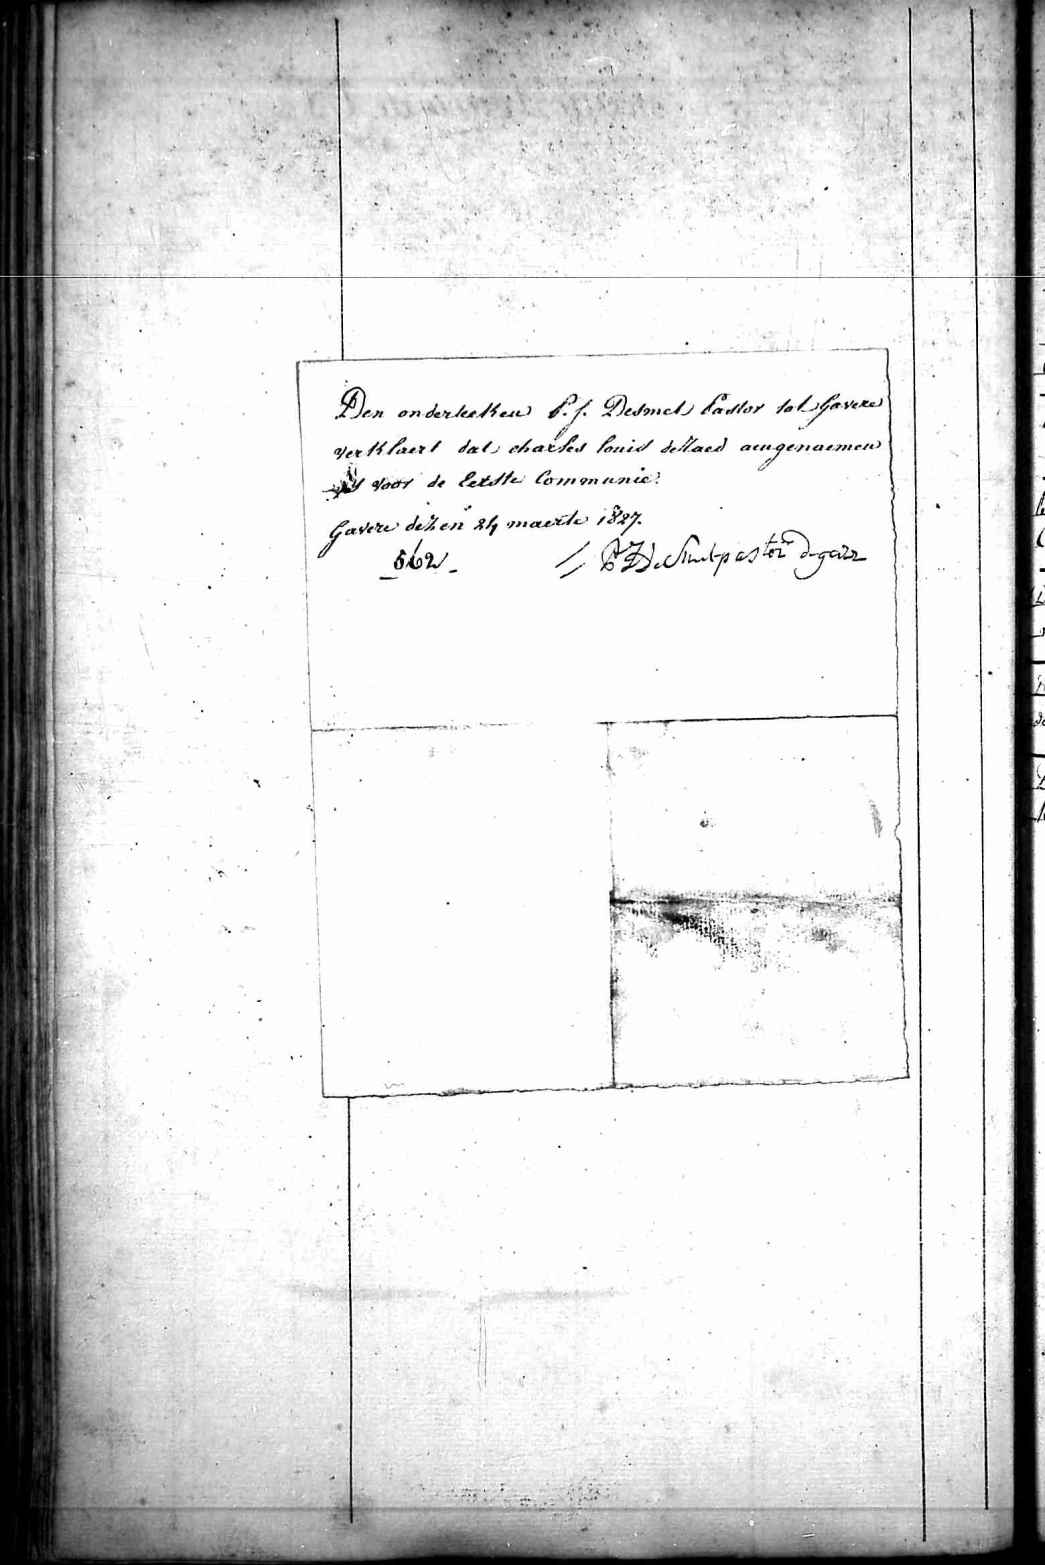 Den onderteeken P. f. Desmet Pastor tot Gavere
verklaert dat charles louis deMaed aengenaemen
is voor de Eerste Communie.
Gavere dezen 24 maerte 1827.
562
pastor